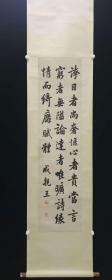 誇目者尚奢愜心者貴當言
窮者無隘論達者唯曠詩緣
情而綺靡賦體 成親王